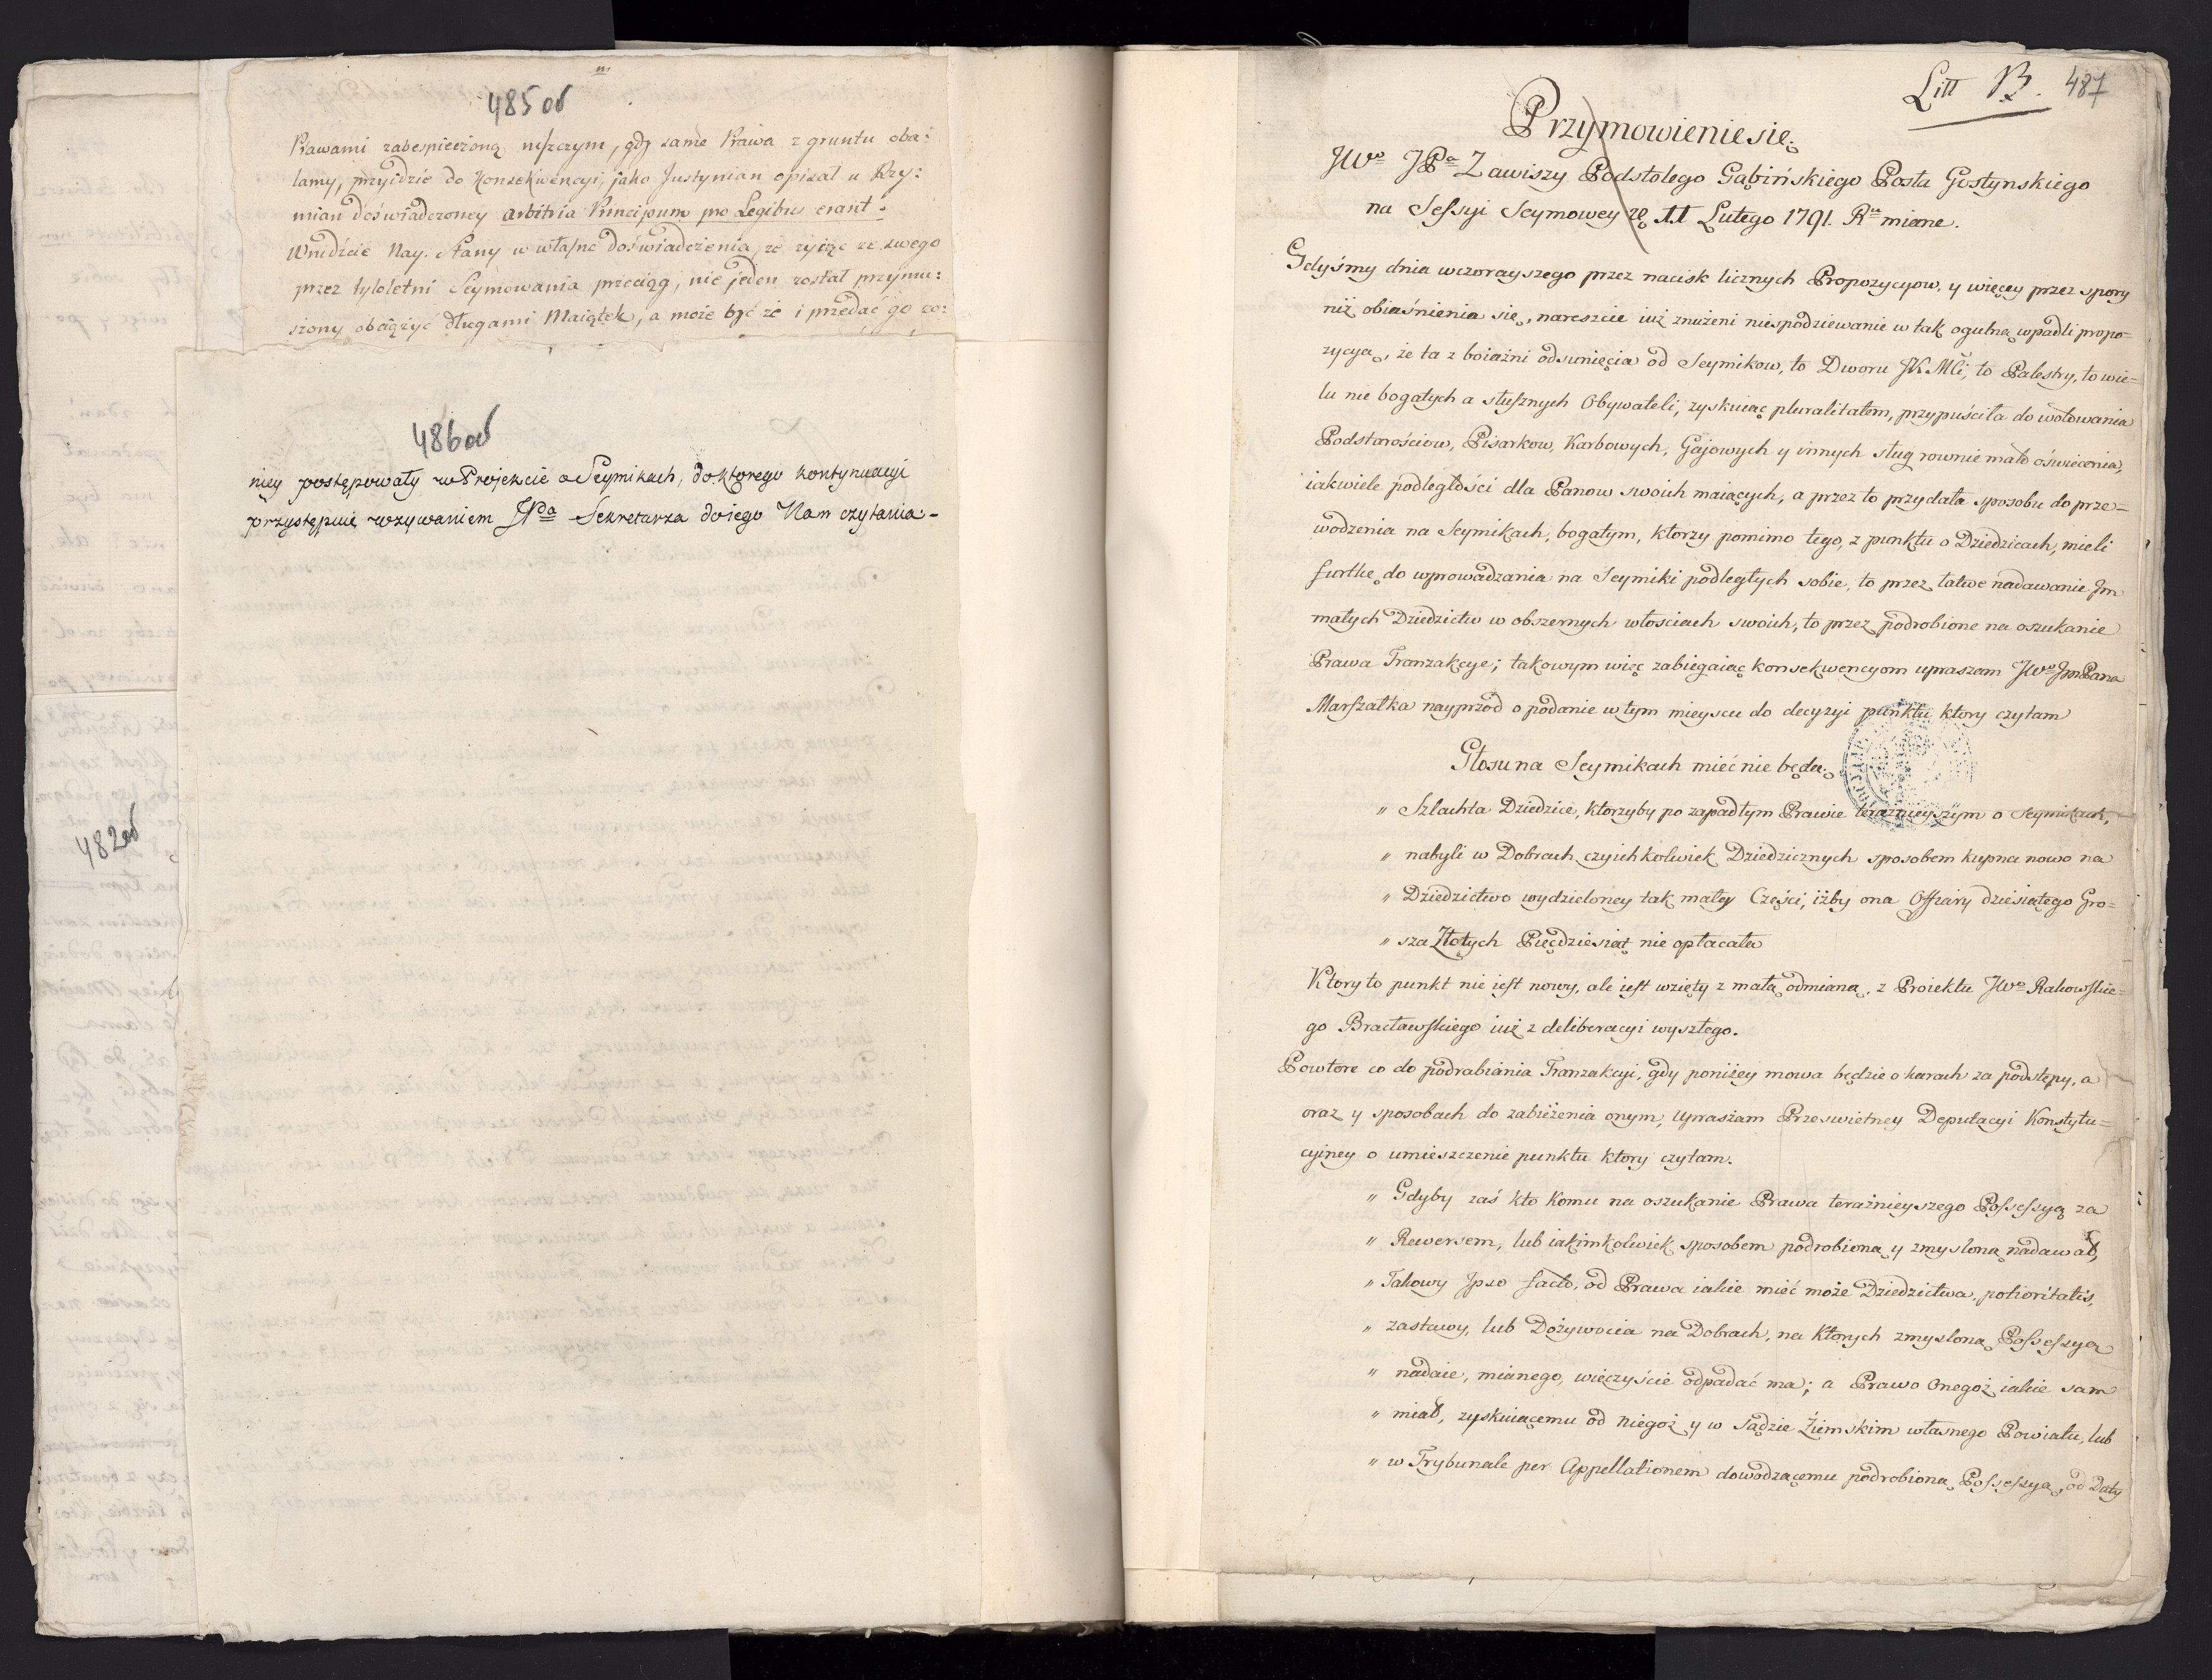 485 od
Prawami zabespieczoną niszczym, gdy same Prawa z gruntu oba:
lamy, przyidzie do Konsekwencyi, jako Justynian opisał u Rzy:
mian doświadczoney arbitria Principum pro Legibus erant.
Wnidźcie Nay. Stany w własne doświadczenia, że zyiąc ze swego
przez tyloletni Seymowania przeciąg, nie jeden został przymu:
szony obciążyć długami Maiątek, a może być że i przedać go zo:
486 od
niey postępowały w Projekcie o Seymikach, do ktorego kontynuacyi
przystępuię wzywaniem JPda Sekretarza do iego Nam czytania.-
482 od
Litt B. 487
Przymowienie się
JWo JPa Zawiszy Podstolego Gąbińskiego Posła Gostynskiego
na Sessyi Seymowey 11 Lutego 1791. Ru miane.
Gdyśmy dnia wczorayszego przez nacisk licznych Propozycyow, y więcey przez spory
niż obiaśnienia się, nareszcie iuż znużeni niespodziewanie w tak ogulną wpadli propo=
zycyą, że ta z boiaźni odsunięcia od Seymikow, to Dworu JKMci, to Palestry, to wie=
lu nie bogatych a słusznych Obywateli, zyskuiąc pluralitatem, przypuściła do wotowania
Podstarościow, Pisarkow, Karbowych, Gajowych y innych sług rownie mało oświecenia,
iak wiele podległości dla Panow swoich maiących, a przez to przydała sposobu do prze=
wodzenia na Seymikach, bogatym, ktorzy pomimo tego, z punktu o Dziedzicach, mieli
furtkę do wprowadzania na Seymiki podległych sobie, to przez łatwe nadawanie Jm
małych Dziedzictw w obszernych włościach swoich, to przez podrobione na oszukanie
Prawa Tranzakcye; takowym więc zabiegaiąc konsekwencyom upraszam JWo JmPana
Marszałka nayprzod o podanie w tym mieyscu do decyzyi punktu ktory czytam
Głosu na Seymikach mieć nie będą
" Szlachta Dziedzice, ktorzyby po zapadłym Prawie teraźnieyszym o Seymikach,
" nabyli w Dobrach czyichkolwiek Dziedzicznych sposobem kupna nowo na
" Dziedzictwo wydzieloney tak małey Części, iżby ona Offiary dziesiątego Gro=
" sza Złotych Pięćdziesiąt nie opłacała
Ktory to punkt nie iest nowy, ale iest wzięty z małą odmianą, z Proiektu JWo Rakowskie=
go Bracławskiego iuż z deliberacyi wyszłego.
Powtore co do podrabiania Tranzakcyi, gdy poniżey mowa będzie o karach za podstępy, a
oraz y sposobach do zabieżenia onym, upraszam Przeswietney Deputacyi Konstytu=
cyiney o umieszczenie punktu ktory czytam.
" Gdyby zaś kto komu na oszukanie Prawa teraźnieyszego Possessyą za
" Rewersem, lub iakimkolwiek sposobem podrobioną y zmysloną nadawał,
" Takowy Ipso facto, od Prawa iakie mieć może Dziedzictwa, potioritatis,
" zastawy, lub Dożywocia na Dobrach, na ktorych zmysloną Possessyą
" nadaie, mianego, wieczyście odpadać ma; a Prawo Onegoż iakie sam
" miał, zyskuiącemu od niegoż y w Sądzie Ziemskim własnego Powiatu, lub
" w Trybunale per Appellationem dowodzącemu podrobioną Possessyą, od Daty